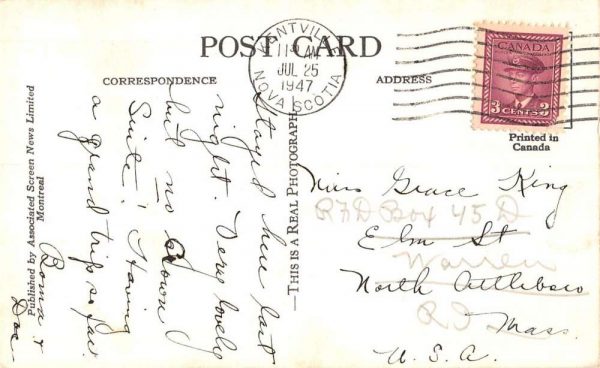 POST CARD
CORRESPONDENCE
ADDRESS
KENTVILLE
11 AM
JUL 25
1947
NOVA SCOTIA
CANADA
3 CENTS 3
Printed in
Canada
Published by Associated Screen News Limited
Montreal
—THIS IS A REAL PHOTOGRAPH—
Stayed here last
night. Very lovely
but no Crown
Suite! Having
a grand trip so far.
&
Doc
Miss Grace King
RFD Box 45 D
Elm St
Warren
North Attleboro
RI
Mass.
U.S.A.